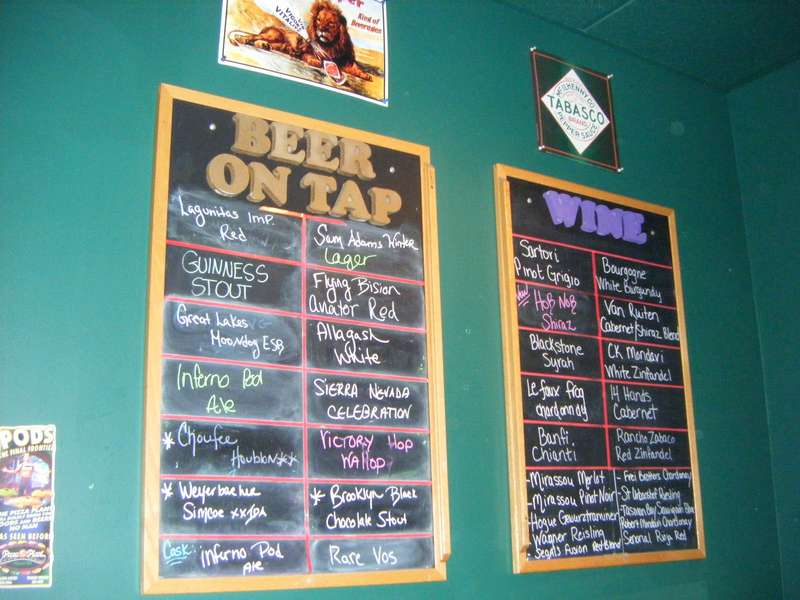 VIGOR
VITALITY
Kind of
Beverages
McILHENNY CO.
TABASCO
BRAND
PEPPER SAUCE
BEER
ON TAP
Lagunitas Imp.
Red
Sam Adams Winter
Lager
GUINNESS
STOUT
Flying Bision
Aviator Red
Great Lakes
Moondog ESB
Allagash
White
Inferno Pod
Ale
SIERRA NEVADA
CELEBRATION
* Choufee
Houblon**
VICTORY HOP
WALLOP
* Weyerbacher
Simcoe xxIPA
* Brooklyn Black
Chocolate Stout
Cask:
Inferno Pod
Ale
Rare Vos
WINE
Sartori
Pinot Grigio
Bourgogne
White Burgundy
New
HoB NoB
Shiraz
Van Ruiten
Cabernet/Shiraz Blend
Blackstone
Syrah
CK Mondavi
White Zinfandel
Le faux frog
chardonnay
14 Hands
Cabernet
Banfi
Chianti
Rancho Zabaco
Red Zinfandel
- Mirassou Merlot
- Mirassou Pinot Noir
- Hogue Gewurztraminer
- Wagner Reisling
- Segals Fusion Red Blend
- Frei Brothers Chardonnay
- St Urbanshof Riesling
- Robert Mondavi Chardonnay
- Senorial Rioja Red
PODS
THE FINAL FRONTIER
THE PIZZA PLANT
NO MAN
AS SEEN BEFORE
Pizza Plant